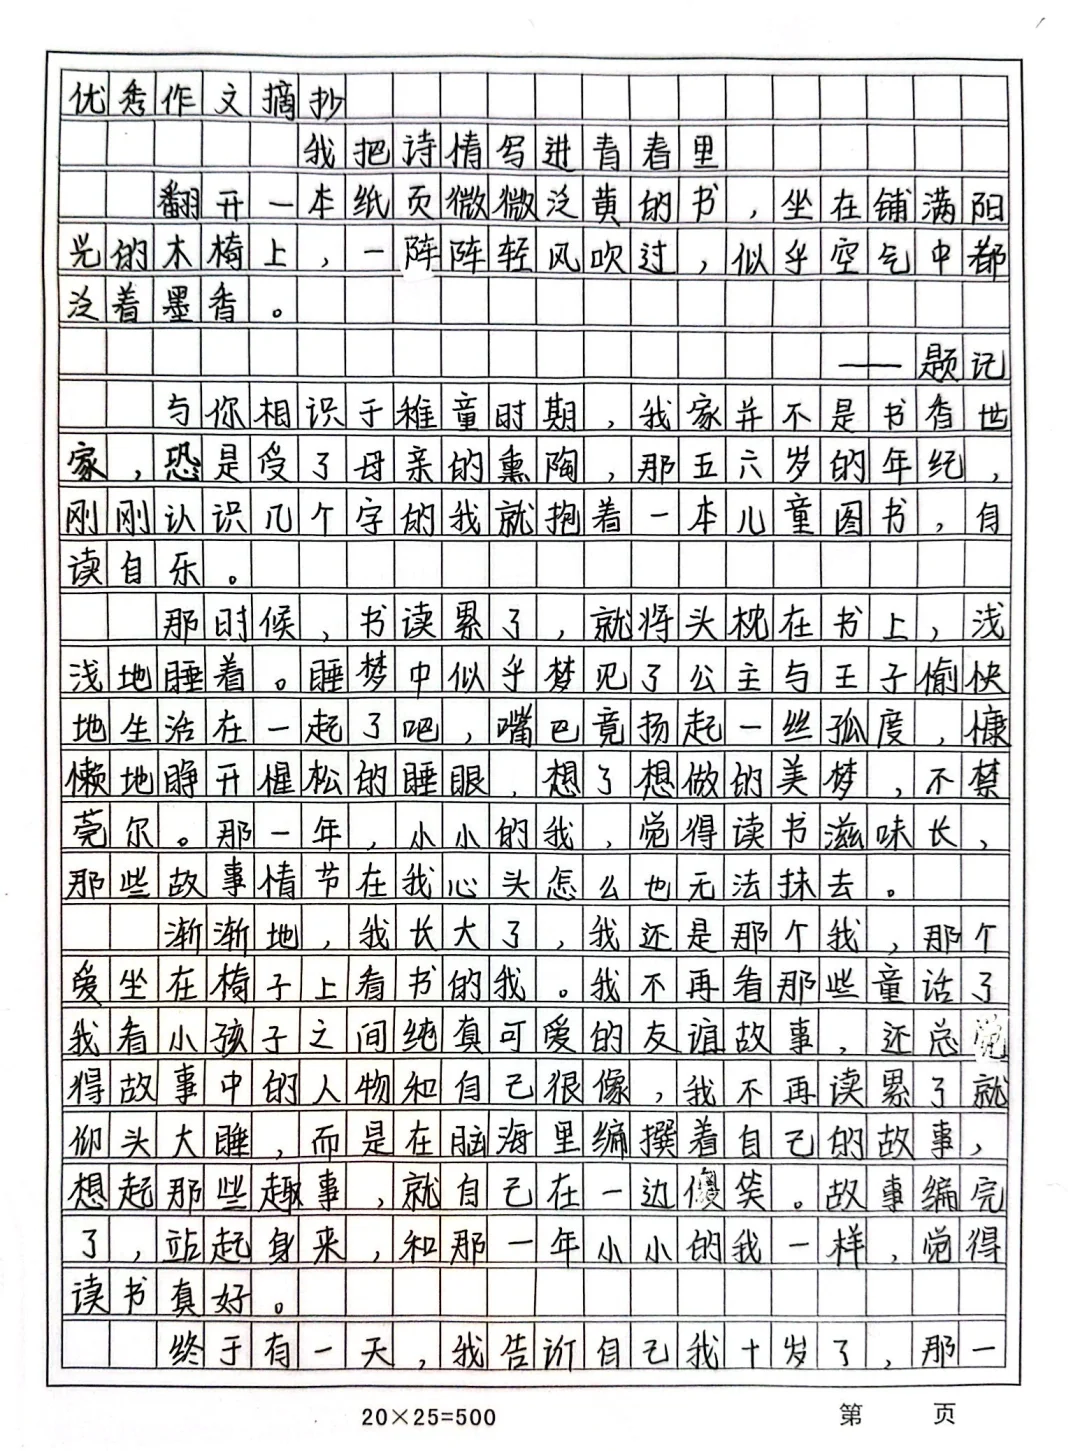 优秀作文摘抄
我把诗情写进青春里
翻开一本纸页微微泛黄的书，坐在铺满阳
光的木椅上，一阵阵轻风吹过，似乎空气中都
泛着墨香。
——题记
与你相识于稚童时期，我家并不是书香世
家，恐是受了母亲的熏陶，那五六岁的年纪，
刚刚认识几个字的我就抱着一本儿童图书，自
读自乐。
那时候，书读累了，就将头枕在书上，浅
浅地睡着。睡梦中似乎梦见了公主与王子愉快
地生活在一起了吧，嘴巴竟扬起一丝孤度，慷
懒地睁开惺松的睡眼，想了想做的美梦，不禁
莞尔。那一年，小小的我，觉得读书滋味长，
那些故事情节在我心头怎么也无法抹去。
渐渐地，我长大了，我还是那个我，那个
爱坐在椅子上看书的我。我不再看那些童话了
我看小孩子之间纯真可爱的友谊故事，还总觉
得故事中的人物和自己很像，我不再读累了就
仰头大睡，而是在脑海里编撰着自己的故事，
想起那些趣事，就自己在一边傻笑。故事编完
了，站起身来，和那一年小小的我一样，觉得
读书真好。
终于有一天，我告诉自己我十岁了，那一
20×25=500
第 页